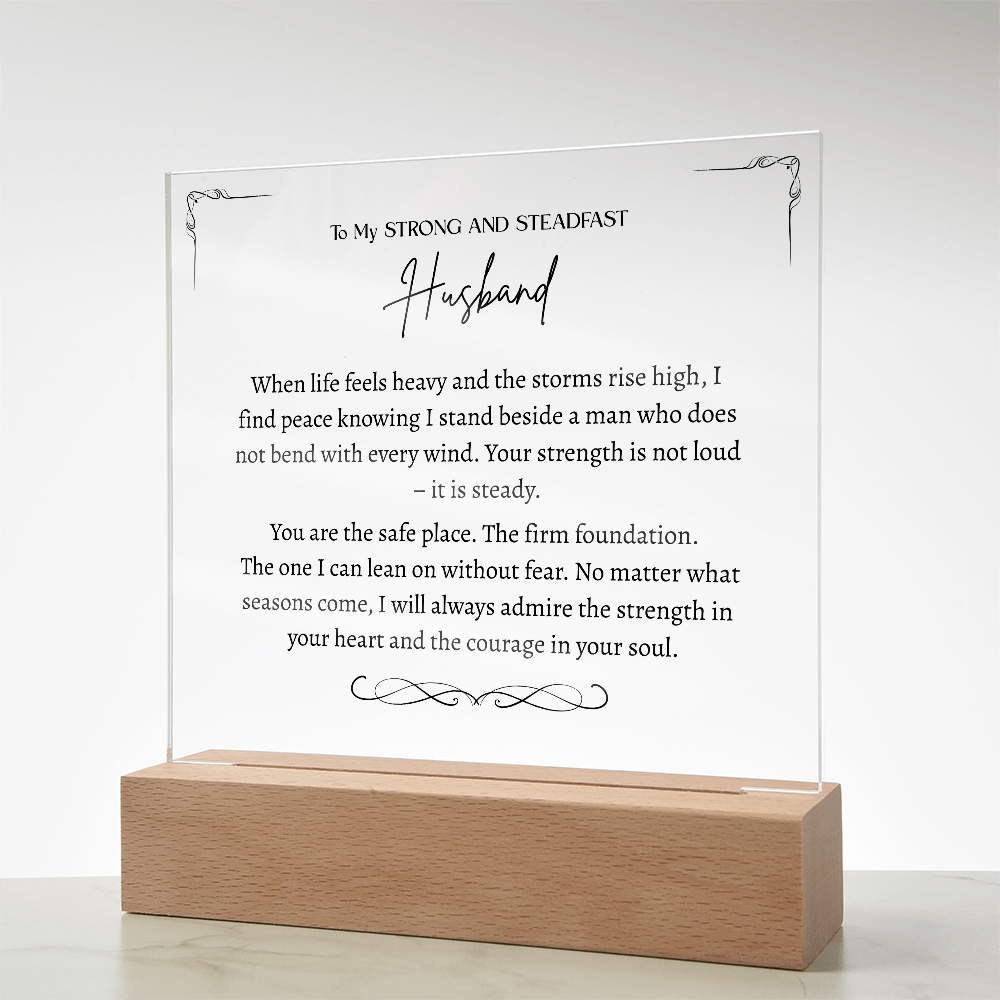 To My STRONG AND STEADFAST
Husband
When life feels heavy and the storms rise high, I
find peace knowing I stand beside a man who does
not bend with every wind. Your strength is not loud
– it is steady.
You are the safe place. The firm foundation.
The one I can lean on without fear. No matter what
seasons come, I will always admire the strength in
your heart and the courage in your soul.